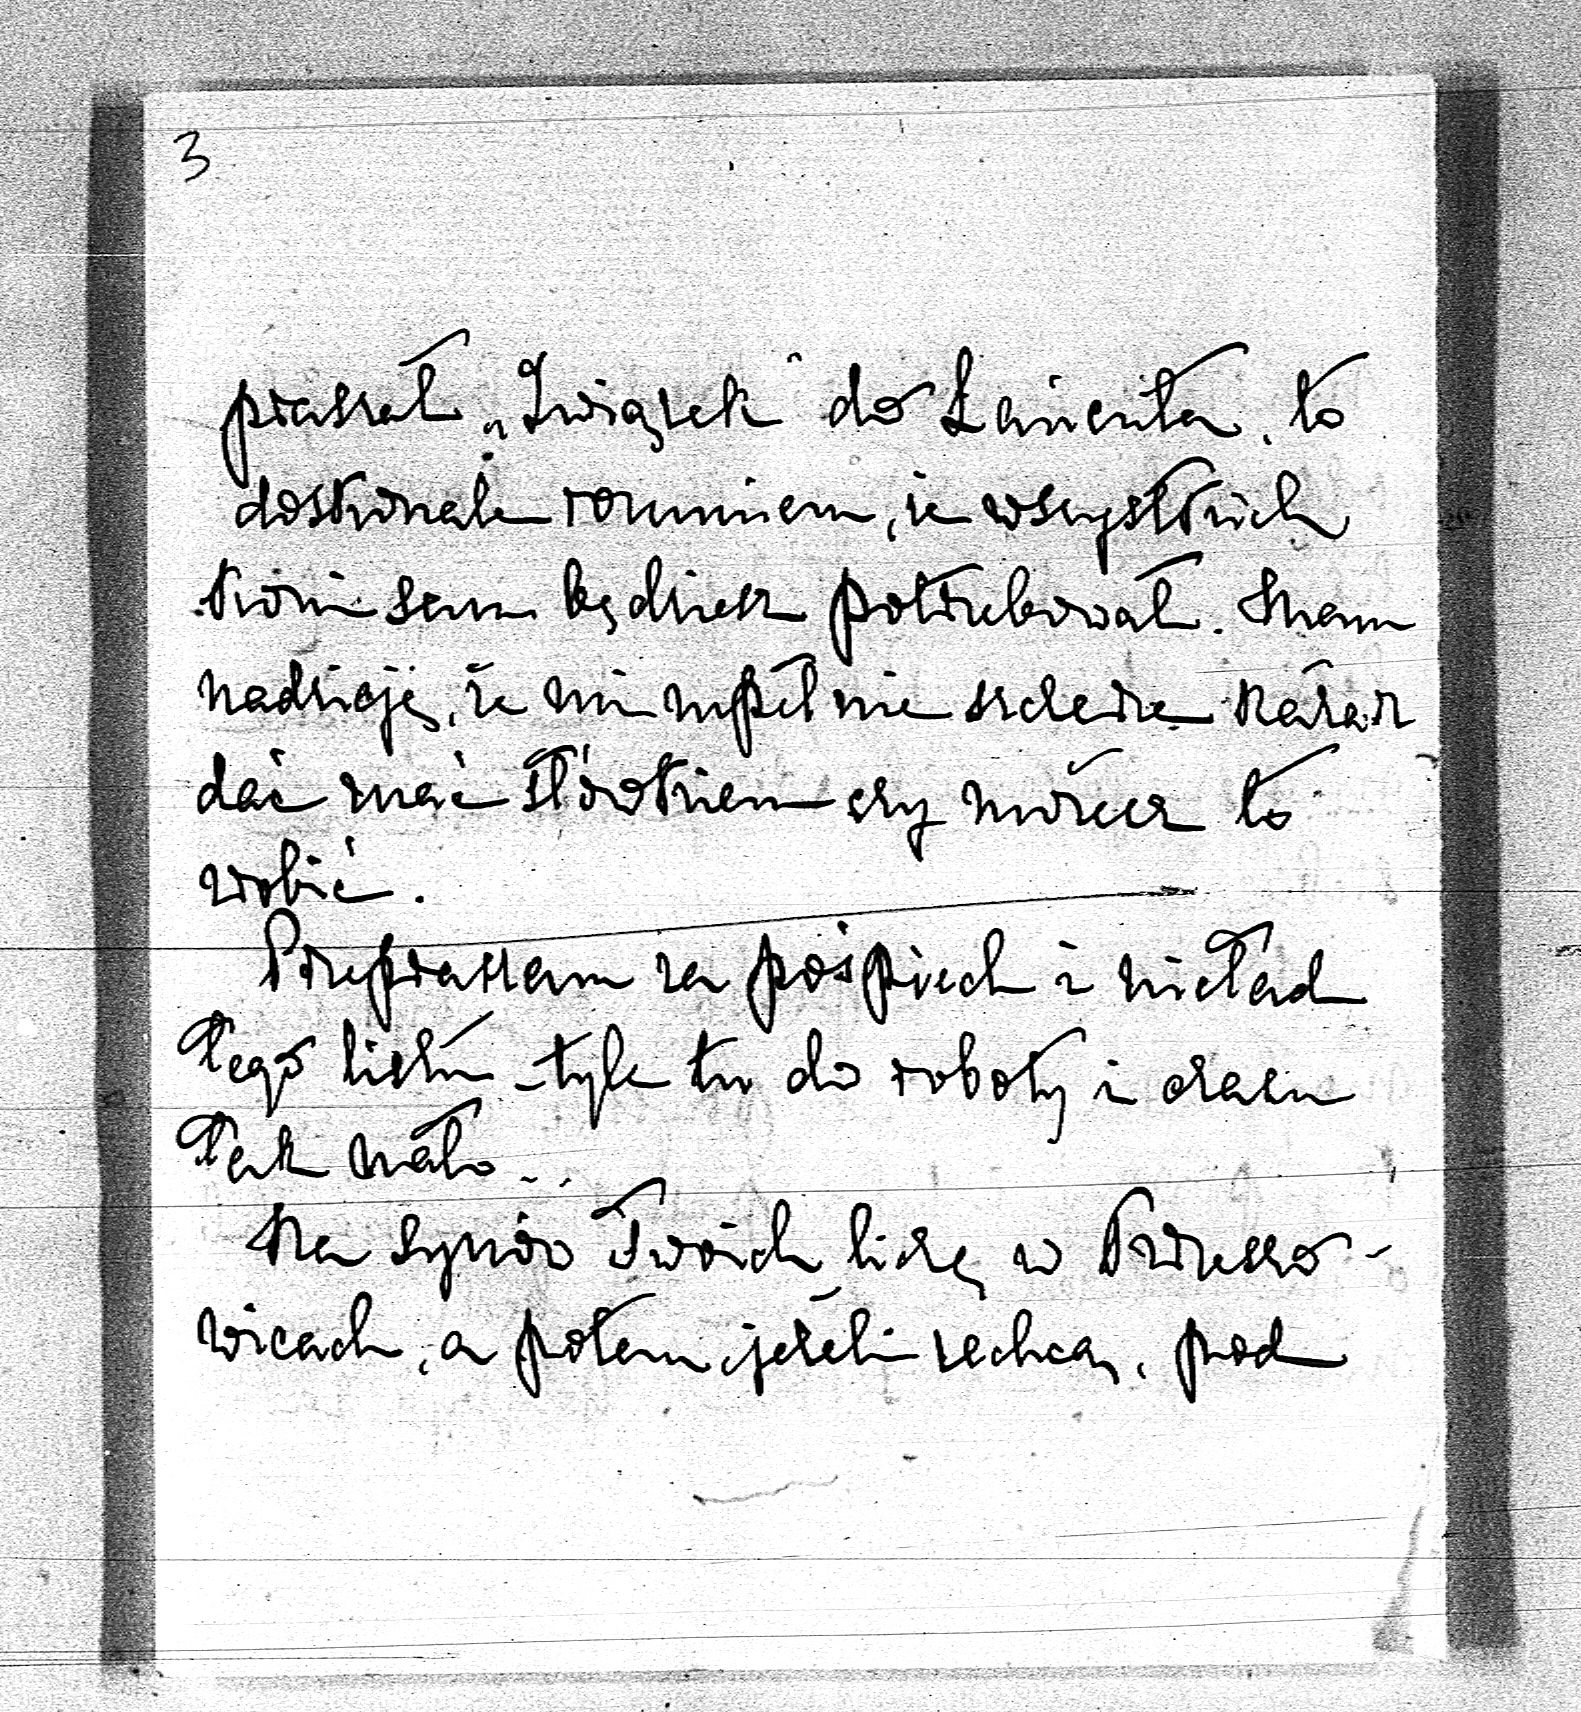 3
praszał „Związek" do Łańcuta, to
doskonale rozumiem, że wszystkich
koni sam będziesz potrzebował. Mam
nadzieję, że mi zupełnie szczerze każesz
dać znać słówkiem czy możesz to
zrobić.
Przepraszam za pośpiech i nieład
tego listu – tyle tu do roboty i czasu
tak mało..
Na synów Twoich liczę w Przeszo-
wicach, a potem, jeżeli zechcą, pod